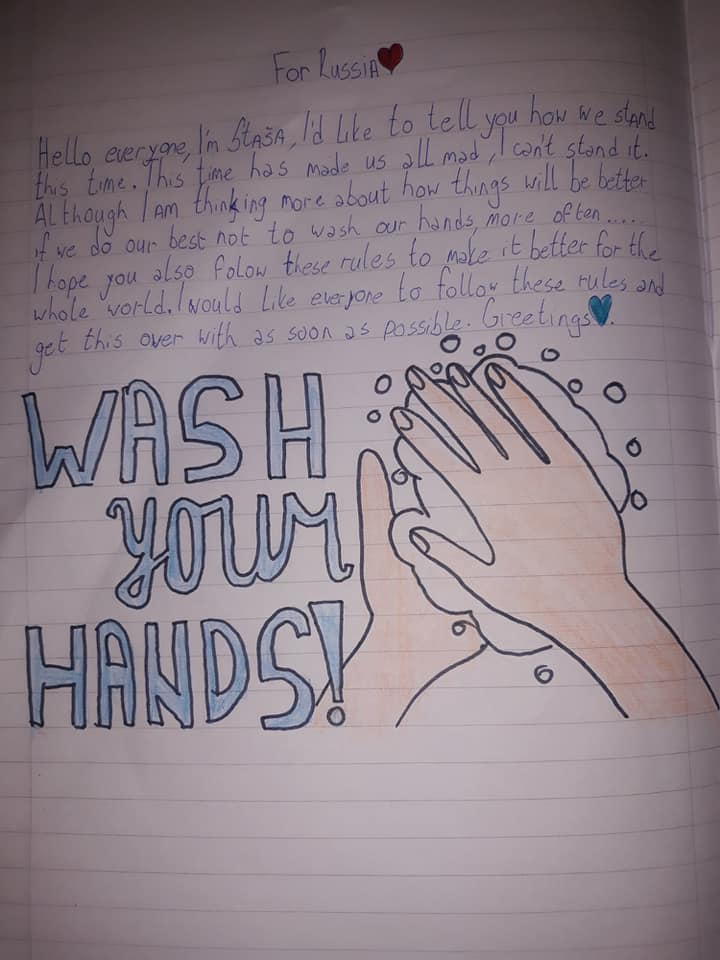 For Russia
Hello everyone, I'm Staša, I'd like to tell you how we stand
this time. This time has made us all mad, I can't stand it.
Although I am thinking more about how things will be better
if we do our best not to wash our hands more often.....
I hope you also folow these rules to make it better for the
whole world. I would like everyone to follow these rules and
get this over with as soon as possible. Greetings.
WASH
your
HANDS!